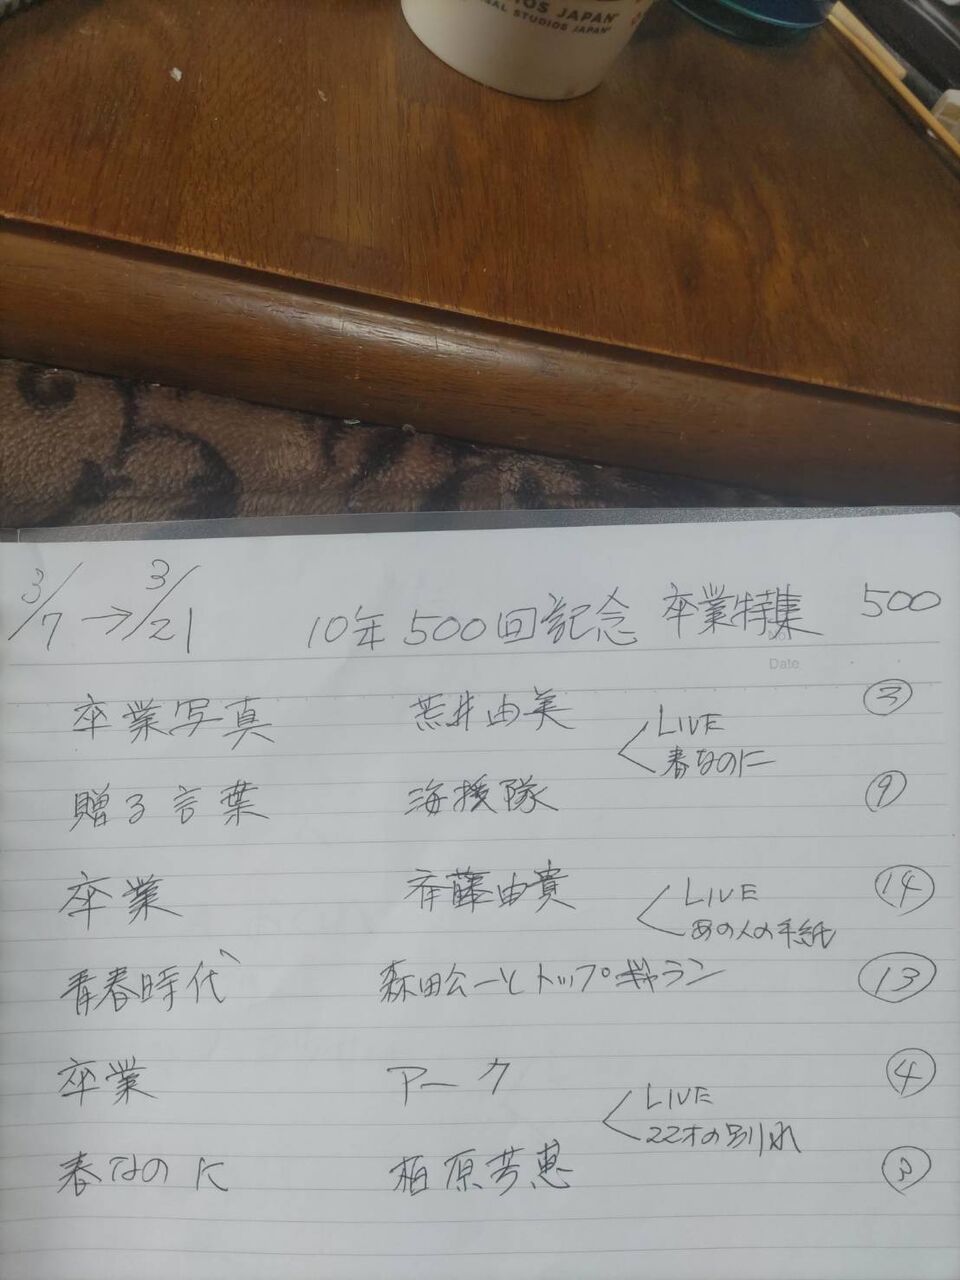 OS JAPAN
SAL STUDIOS JAPAN
3/7 → 3/21 10年 500回記念 卒業特集 500
Date
卒業写真 荒井由実 LIVE ③
春なのに
贈る言葉 海援隊 ⑨
卒業 斉藤由貴 LIVE ⑭
あの人の手紙
青春時代 森田公一とトップギャラン ⑬
卒業 アーク ④
LIVE
22才の別れ
春なのに 柏原芳恵 ③